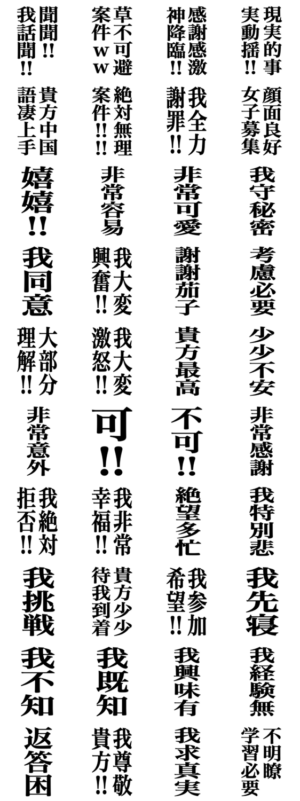 聞聞!!
我話聞!!
草不可避
案件ww
感謝感激
神降臨!!
現実的事
実動揺!!
貴方中国
語凄上手
絶対無理
案件!!!!
我全力
謝罪!!
顔面良好
女子募集
嬉嬉!!
非常容易
非常可愛
我守秘密
我同意
我大変
興奮!!
謝謝茄子
考慮必要
大部分
理解!!
我大変
激怒!!
貴方最高
少少不安
非常意外
可!!
不可!!
非常感謝
我絶対
拒否!!
我非常
幸福!!
絶望多忙
我特別悲
我挑戦
貴方少少
待我到着
我参加
希望!!
我先寝
我不知
我既知
我興味有
我経験無
返答困
我尊敬
貴方!!
我求真実
不明瞭
学習必要